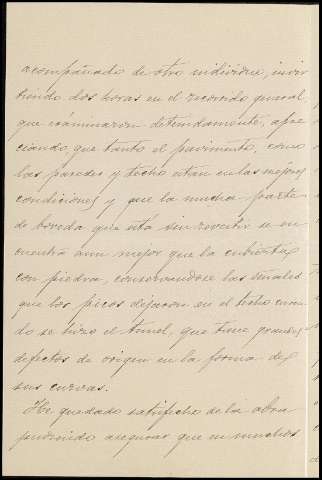 acompañado de otro individuo, invir
tiendo dos horas en el recorrido general
que examinaron detenidamente, apre
ciando, que tanto el pavimento, como
las paredes y techo están en las mejores
condiciones y que la mucha parte
de boveda que está sin revestir se en
cuentra aun mejor que la cubierta
con piedra, conservandose las señales
que los picos dejaron en el techo cuan
do se hizo el tunel, que tiene grandes
defectos de origen en la forma de
sus curvas.
He quedado satisfecho de la obra
pudiendo asegurar que en muchos